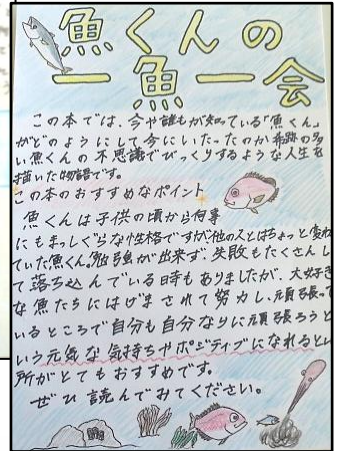 魚くんの
一魚一会
この本では、今や誰もが知っている「魚くん」
がどのようにして今にいたったのか奇跡の多
い魚くんの不思議でびっくりするような人生を
描いた物語です。
この本のおすすめなポイント
魚くんは子供の頃から何事
にもまっしぐらな性格ですが他の人とはちょっと変わっ
ていた魚くん。勉強が出来ず、失敗もたくさんし
て落ち込んでいる時もありましたが、大好き
な魚たちにはげまされて努力し、頑張って
いるところで自分も自分なりに頑張ろうと
いう元気な気持ちやポジティブになれるとい
所がとてもおすすめです。
ぜひ読んでみてください。